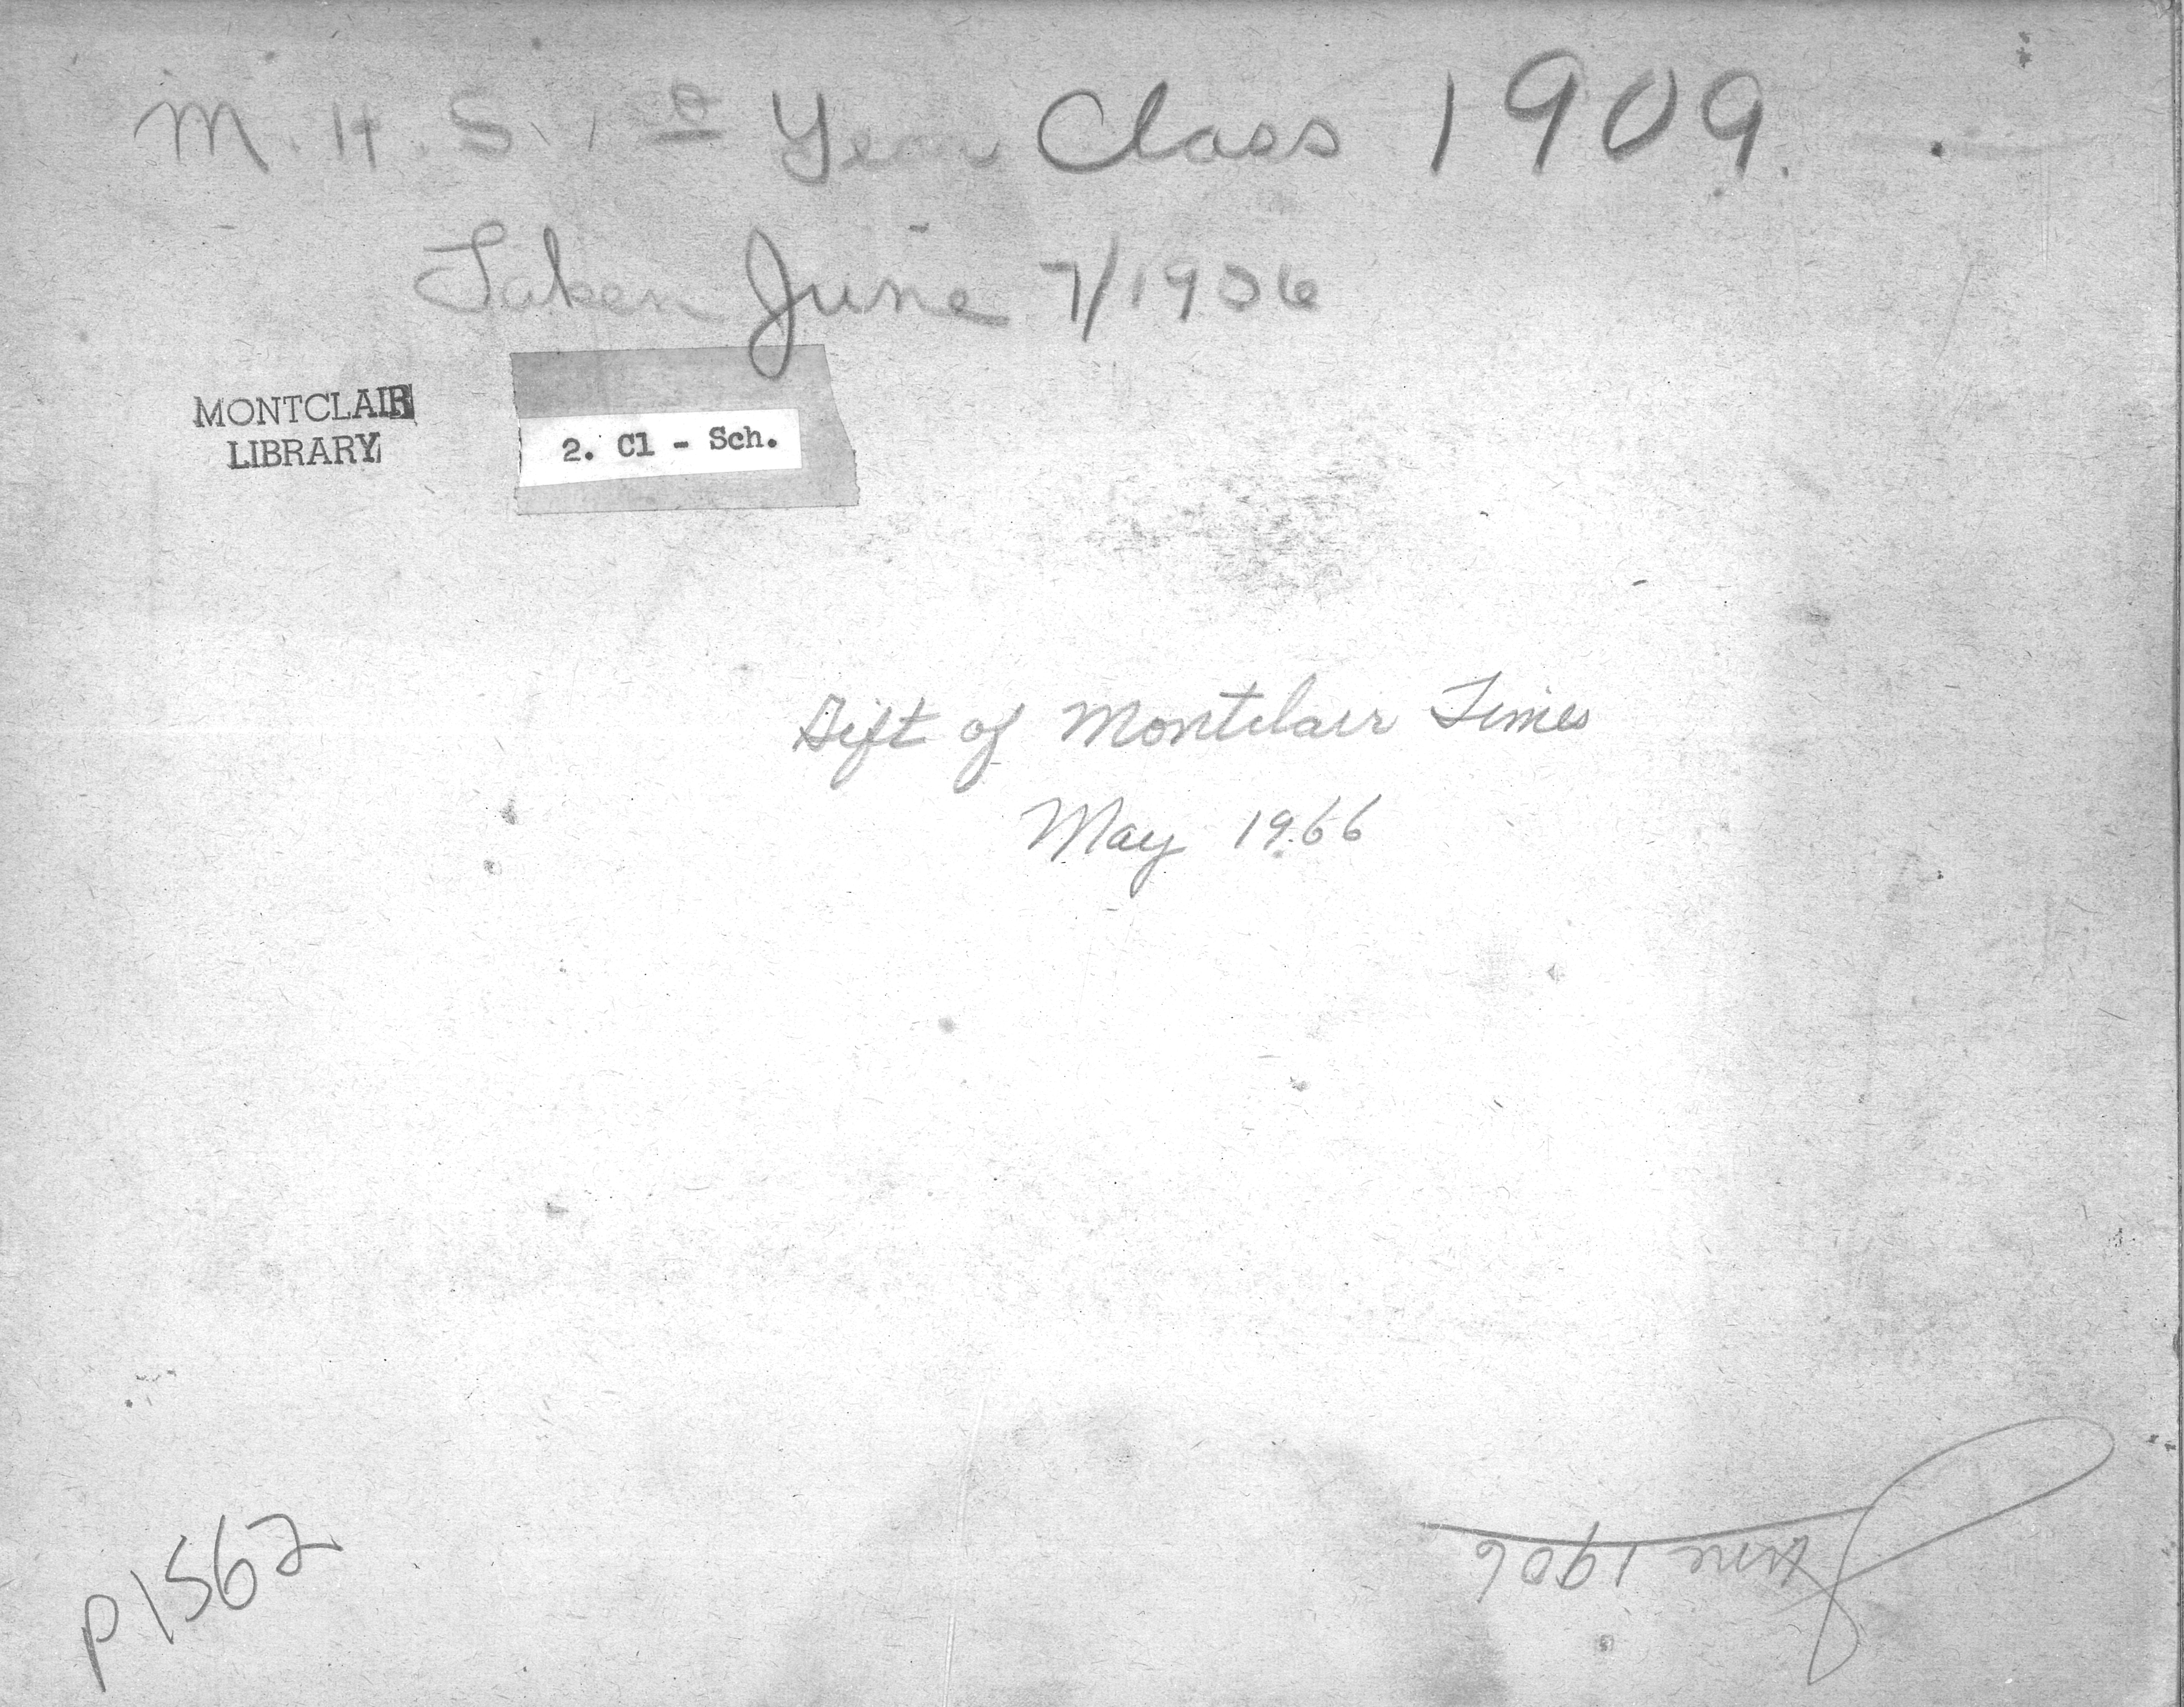 M. H. S. 1st Year Class 1909.
Taken June 7/1906
MONTCLAIR
LIBRARY
2. Cl - Sch.
Gift of Montclair Times
May 1966
P1562
June 1906